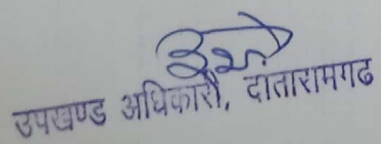 उपखण्ड अधिकारी, दातारामगढ